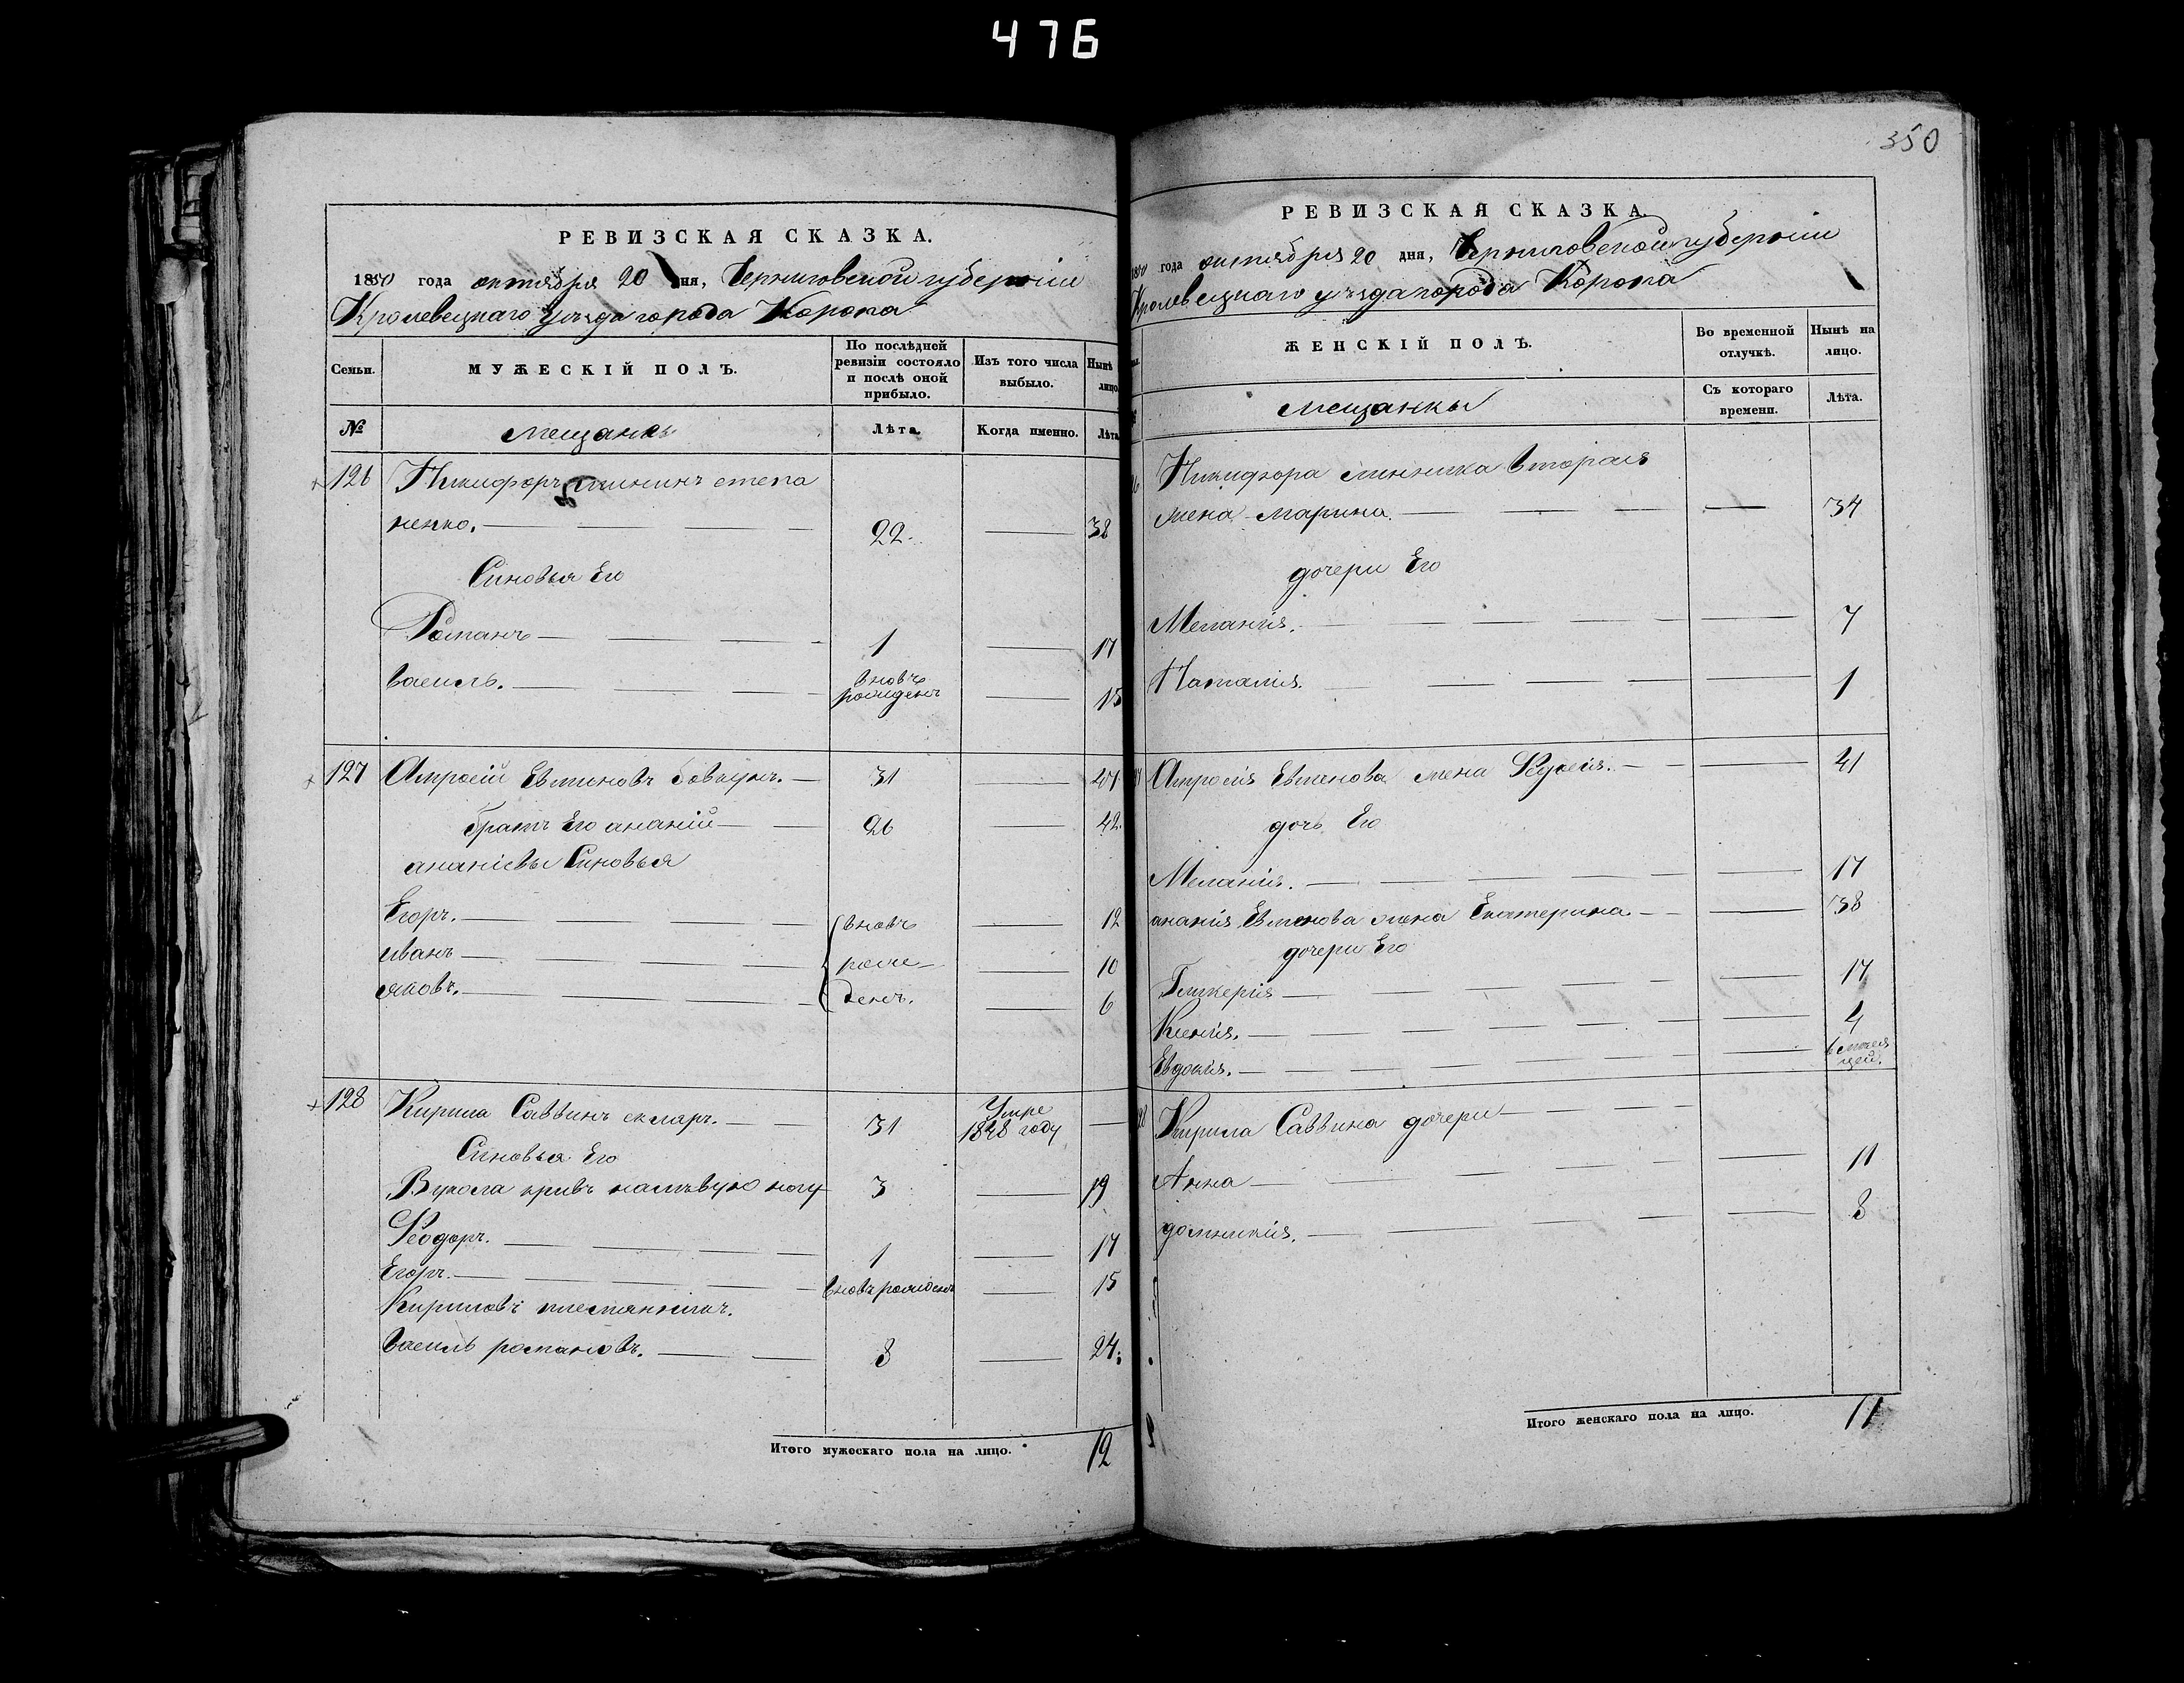 476
350
РЕВИЗСКАЯ СКАЗКА.
1850 года октября 20 дня, Черниговской губернии
Кролевецкаго уѣзда города Коропа
Семьи.
МУЖЕСКІЙ ПОЛЪ.
По послѣдней ревизіи состояло и послѣ оной прибыло.
Изъ того числа выбыло.
Нынѣ лицо.
№
мещанъ
Лѣта.
Когда именно.
Лѣта
126 Никифоръ степа
ненко. 22. 38
Синовья Его
Романъ 1 17
василь. вновъ рожденъ 15
127 Амросій Евминовъ 31 47
братъ Его ананій 26 42.
ананіевы Синовья
Егоръ. вновъ 12
иванъ рож 10
яковъ. денъ. 6
128 Кирила Саввинъ скляръ. 31 Умре 1848 году
Синовья Его
Вукола кривъ налѣвую ногу 3 19
Ѳеодоръ. 1 17
Егоръ. вновь рожденъ 15
Кириловъ племянникъ.
василь романовъ. 8 24.
Итого мужескаго пола на лицо. 12
РЕВИЗСКАЯ СКАЗКА.
1850 года октября 20 дня, Черниговской губерніи
Кролевецкаго уѣзда города Коропа
ЖЕНСКІЙ ПОЛЪ.
Во временной отлучкѣ.
Нынѣ на лицо.
мещанкы
Съ котораго времени.
Лѣта.
Никифора минника вторая
жена марина. 34
дочери Его
Меланія. 7
Наталія. 1
Амросія Евменова жена 41
дочь Его
Меланія. 17
ананія Евменова жена Екатерина 38
дочери Его
Гликерія 17
Ксенія. 4
Евдокія. 6 месяцей.
Кирила Саввина дочери
Анна 11
домникія. 8
Итого женскаго пола на лицо. 11